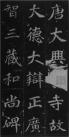 唐大興善寺故
大德大辯正廣
智三藏和尚碑